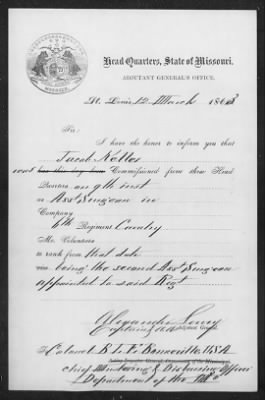 Head Quarters, State of Missouri.
ADJUTANT GENERAL'S OFFICE.
St. Louis 12 March 1863
Sir:
I have the honor to inform you that
Jacob Keller
was has this day been Commissioned from these Head
Quarters on 9th inst
as Asst Surgeon in
Company
6th Regiment Cavalry
Mo. Volunteers
to rank from that date
being the second Asst Surgeon
appointed to said Regt
Alexander Lowry
Captain &
To Colonel B. L. E. Bonneville USA
Chief Mustering & Disbursing Officer
Department of the Mo